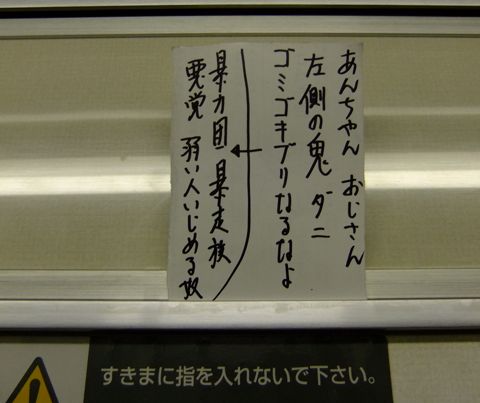 あんちゃん おじさん
左側の鬼 ダニ
ゴミゴキブリなるなよ
←
暴力団 暴走族
悪党 弱い人いじめる奴
すきまに指を入れないで下さい。